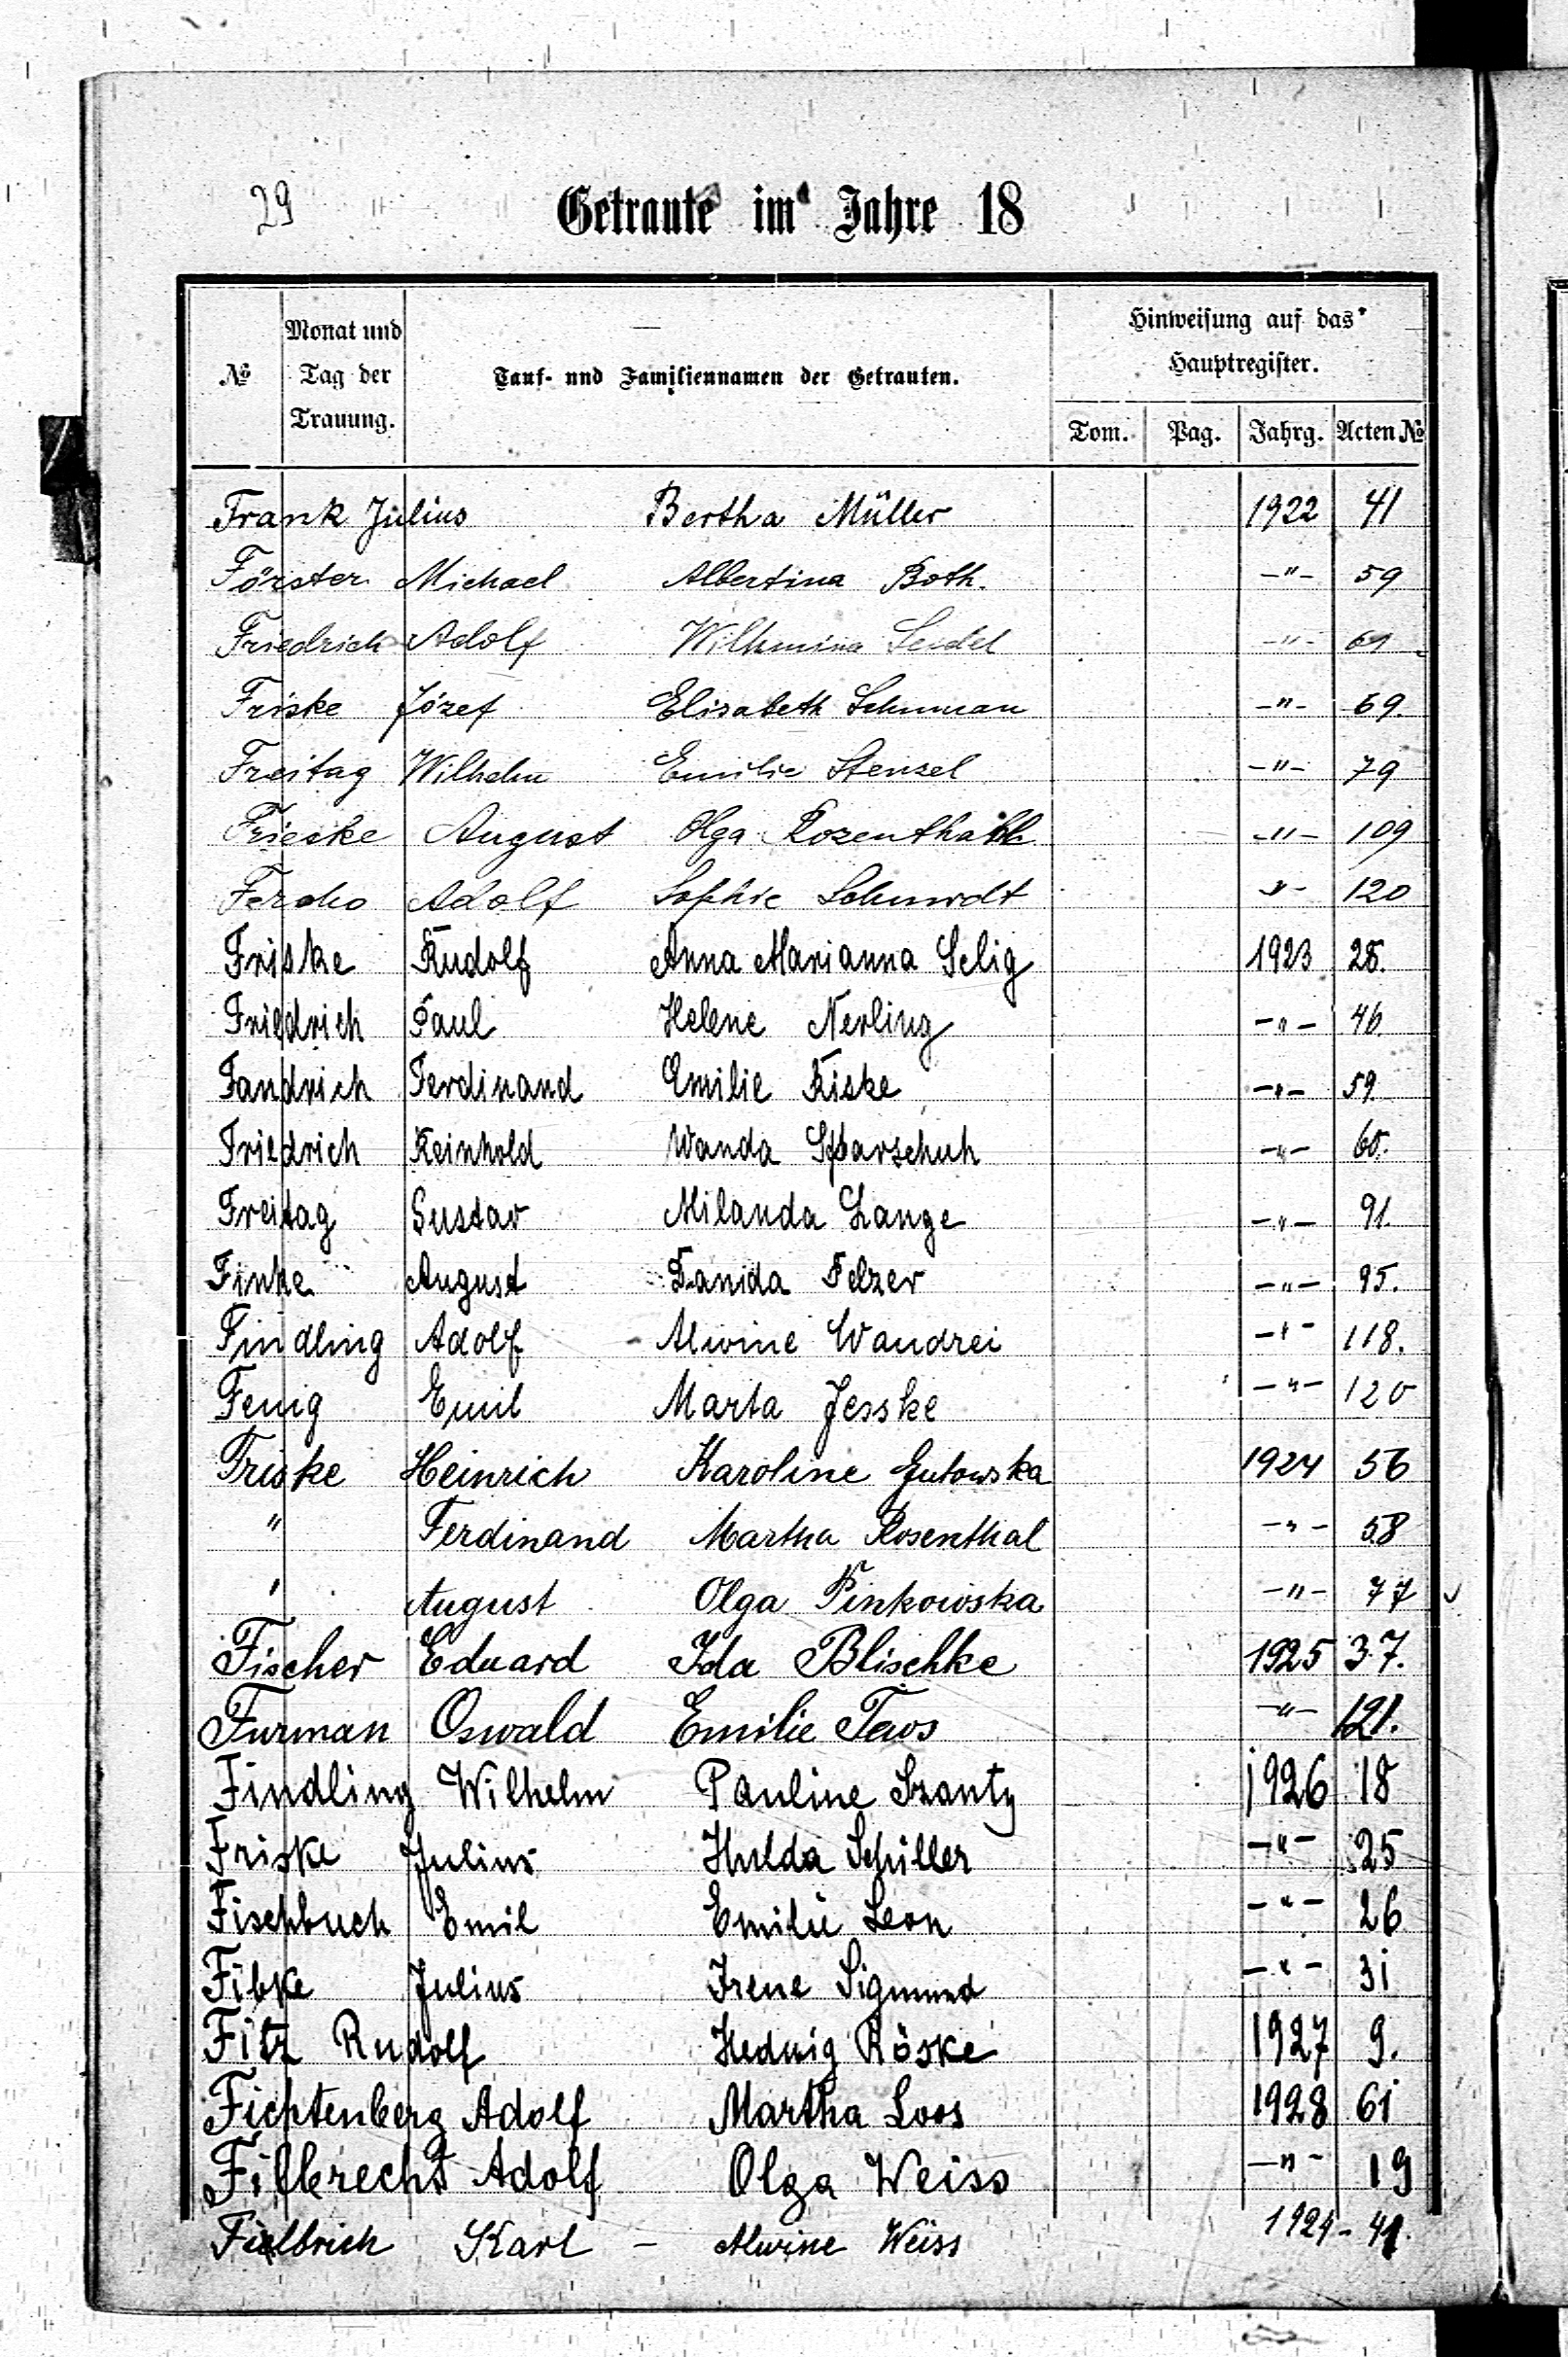 29
Getraute im Jahre 18
№ Monat und Tag der Trauung. Tauf- und Familiennamen der Getrauten. Hinweisung auf das Hauptregister.
Tom. Pag. Jahrg. Acten №
Frank Julius Bertha Müller 1922 41
Förster Michael Albertina Both. -"- 59
Friedrich Adolf Wilhmina Seidel -"- 61
Friske Józef Elisabeth Schuman -"- 69.
Freitag Wilhelm Emilie Stensel -"- 79
Frieske August Olga Rozenthall -"- 109
Fercho Adolf Sophie Schmidt -"- 120
Friske Rudolf Anna Marianna Selig 1923 28.
Friedrich Paul Helene Nerling -"- 46.
Fandrich Ferdinand Emilie Kiske -"- 59.
Friedrich Reinhold Wanda Sparschuh -"- 60.
Freitag Gustav Milanda Lange -"- 91.
Finke August Felzer -"- 95.
Findling Adolf Alwine Wandrei -"- 118.
Fenig Emil Marta Jesske -"- 120
Friske Heinrich Karoline Gutowska 1924 56
" Ferdinand Martha Rosenthal -"- 58
" August Olga Pinkowska -"- 77
Fischer Eduard Ida Blischke 1925 37.
Furman Oswald Emilie Tews -"- 121.
Findling Wilhelm Pauline Szanty 1926 18
Friske Julius Hulda Schiller -"- 25
Fischbuch Emil Emilie Leon -"- 26
Fibke Julius Irene Sigmund -"- 31
Fitz Rudolf Hedwig Röske 1927 9.
Fichtenberg Adolf Martha Loos 1928 61
Filbrecht Adolf Olga Weiss -"- 19
Karl - Alwine Weiss 1929 - 41.